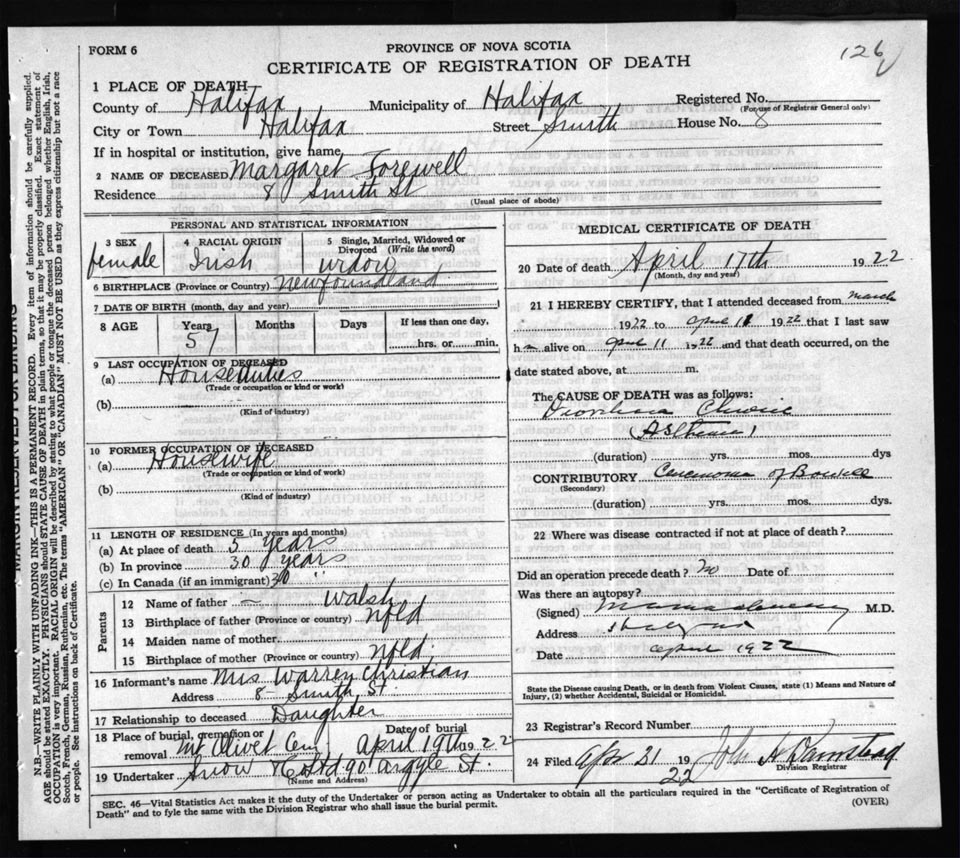 FORM 6
PROVINCE OF NOVA SCOTIA
126
CERTIFICATE OF REGISTRATION OF DEATH
1 PLACE OF DEATH
County of Halifax Municipality of Halifax Registered No.
(For use of Registrar General only)
City or Town Halifax Street Smith House No. 8
If in hospital or institution, give name
2 NAME OF DECEASED Margaret Forewell
Residence 8 Smith St
(Usual place of abode)
PERSONAL AND STATISTICAL INFORMATION
3 SEX 4 RACIAL ORIGIN 5 Single, Married, Widowed or Divorced (Write the word)
female Irish widow
6 BIRTHPLACE (Province or Country) Newfoundland
7 DATE OF BIRTH (month, day and year)
8 AGE Years Months Days If less than one day,
57 hrs. or min.
9 LAST OCCUPATION OF DECEASED
(a) Houseduties
(Trade or occupation or kind or work)
(b)
(Kind of industry)
10 FORMER OCCUPATION OF DECEASED
(a) Housewife
(Trade or occupation or kind or work)
(b)
(Kind of industry)
11 LENGTH OF RESIDENCE (In years and months)
(a) At place of death 3 years
(b) In province 30 years
(c) In Canada (if an immigrant) 30 "
Parents
12 Name of father ~ Walsh
13 Birthplace of father (Province or country) Nfld
14 Maiden name of mother
15 Birthplace of mother (Province or country) Nfld.
16 Informant's name Mrs Warren Christian
Address 8 - Smith St.
17 Relationship to deceased Daughter
18 Place of burial, cremation or removal Mt Olivet Cem Date of burial April 19th 1922
19 Undertaker Snow & Co Ltd 90 Argyle St
(Name and Address)
MEDICAL CERTIFICATE OF DEATH
20 Date of death April 17th 1922
(Month, day and year)
21 I HEREBY CERTIFY, that I attended deceased from March
1922 to April 11 1922 that I last saw
h alive on April 11 1922 and that death occurred, on the
date stated above, at m.
The CAUSE OF DEATH was as follows:
Diorrhoea Chronic
Asthenia
(duration) yrs. mos. dys
CONTRIBUTORY Carcinoma of Bowell
(Secondary)
(duration) yrs. mos. dys.
22 Where was disease contracted if not at place of death?
Did an operation precede death? No Date of
Was there an autopsy?
(Signed) M.D.
Address
Date April 1922
State the Disease causing Death, or in death from Violent Causes, state (1) Means and Nature of Injury, (2) whether Accidental, Suicidal or Homicidal.
23 Registrar's Record Number
24 Filed Apr 21 1922 John A
Division Registrar
SEC. 46—Vital Statistics Act makes it the duty of the Undertaker or person acting as Undertaker to obtain all the particulars required in the "Certificate of Registration of
Death" and to fyle the same with the Division Registrar who shall issue the burial permit.
(OVER)
MARGIN RESERVED FOR BINDING
N.B.—WRITE PLAINLY WITH UNFADING INK—THIS IS A PERMANENT RECORD. Every item of information should be carefully supplied.
AGE should be stated EXACTLY. PHYSICIANS should STATE CAUSE OF DEATH in plain terms, so that it may be properly classified. Exact statement of
OCCUPATION is very important. RACIAL ORIGIN will be described by stating to what people or tongue the deceased person belonged whether English, Irish,
Scotch, French, German, Russian, Ruthenian, etc. The terms "AMERICAN" OR "CANADIAN" MUST NOT BE USED as they express citizenship but not a race
or people. See instructions on back of Certificate.